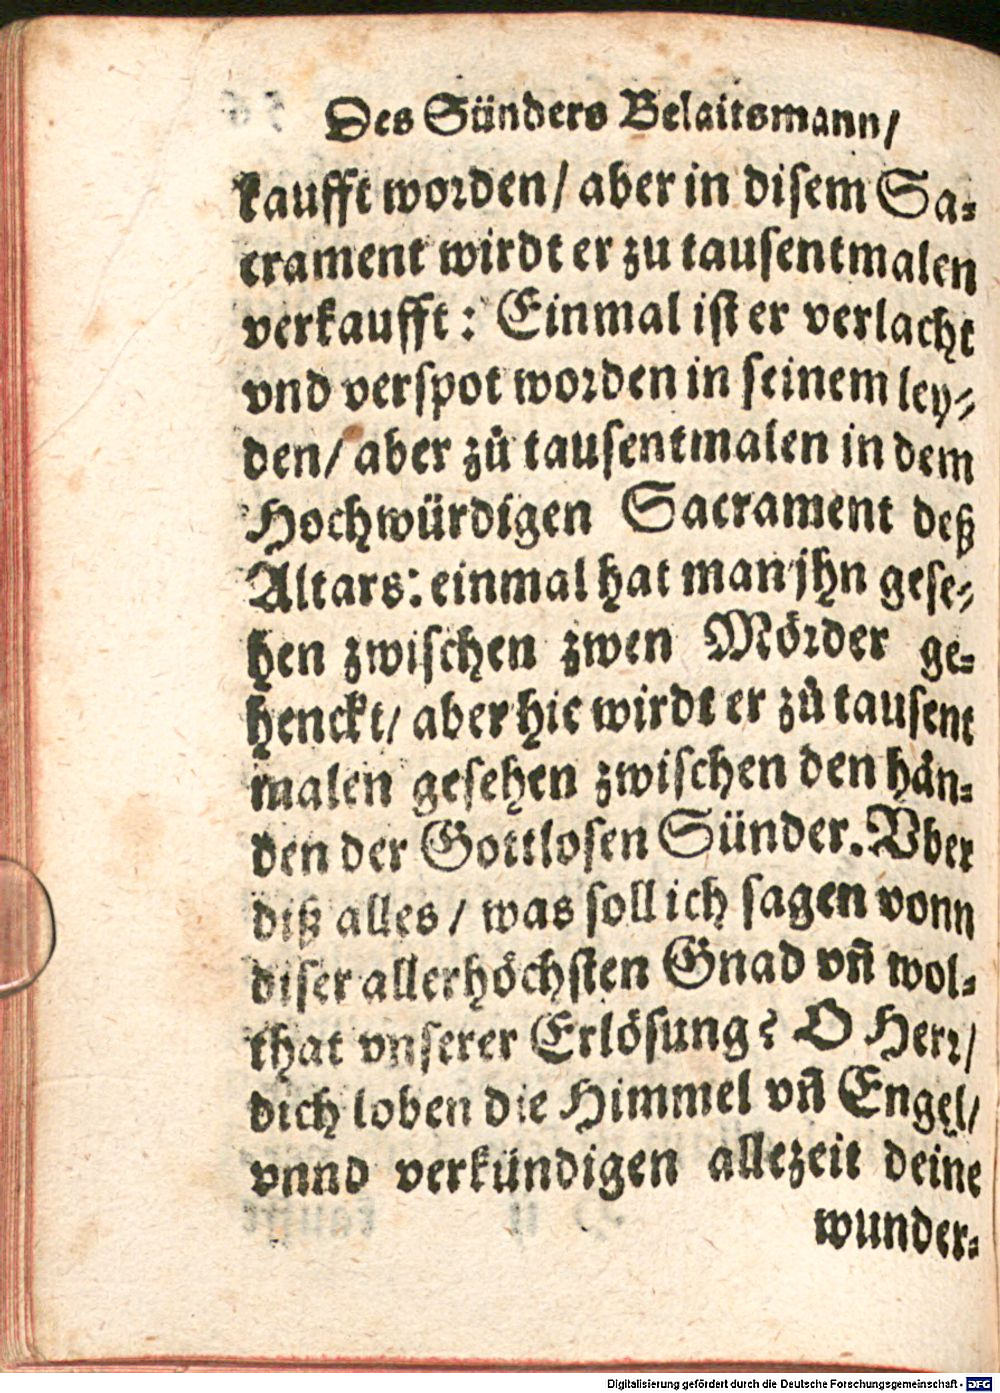 Des Sünders Belaitsmann/
kaufft worden/ aber in disem Sa-
crament wirdt er zu tausentmalen
verkaufft: Einmal ist er verlacht
vnd verspot worden in seinem ley-
den/ aber zů tausentmalen in dem
Hochwürdigen Sacrament deß
Altars: einmal hat man jhn gese-
hen zwischen zwen Mörder ge-
henckt/ aber hie wirdt er zů tausent
malen gesehen zwischen den hän-
den der Gottlosen Sünder. Vber
diß alles/ was soll ich sagen vonn
diser allerhöchsten Gnad vñ wol-
that vnserer Erlösung? O Herr/
dich loben die Himmel vñ Engel/
vnnd verkündigen allezeit deine
wunder-
Digitalisierung gefördert durch die Deutsche Forschungsgemeinschaft - DFG